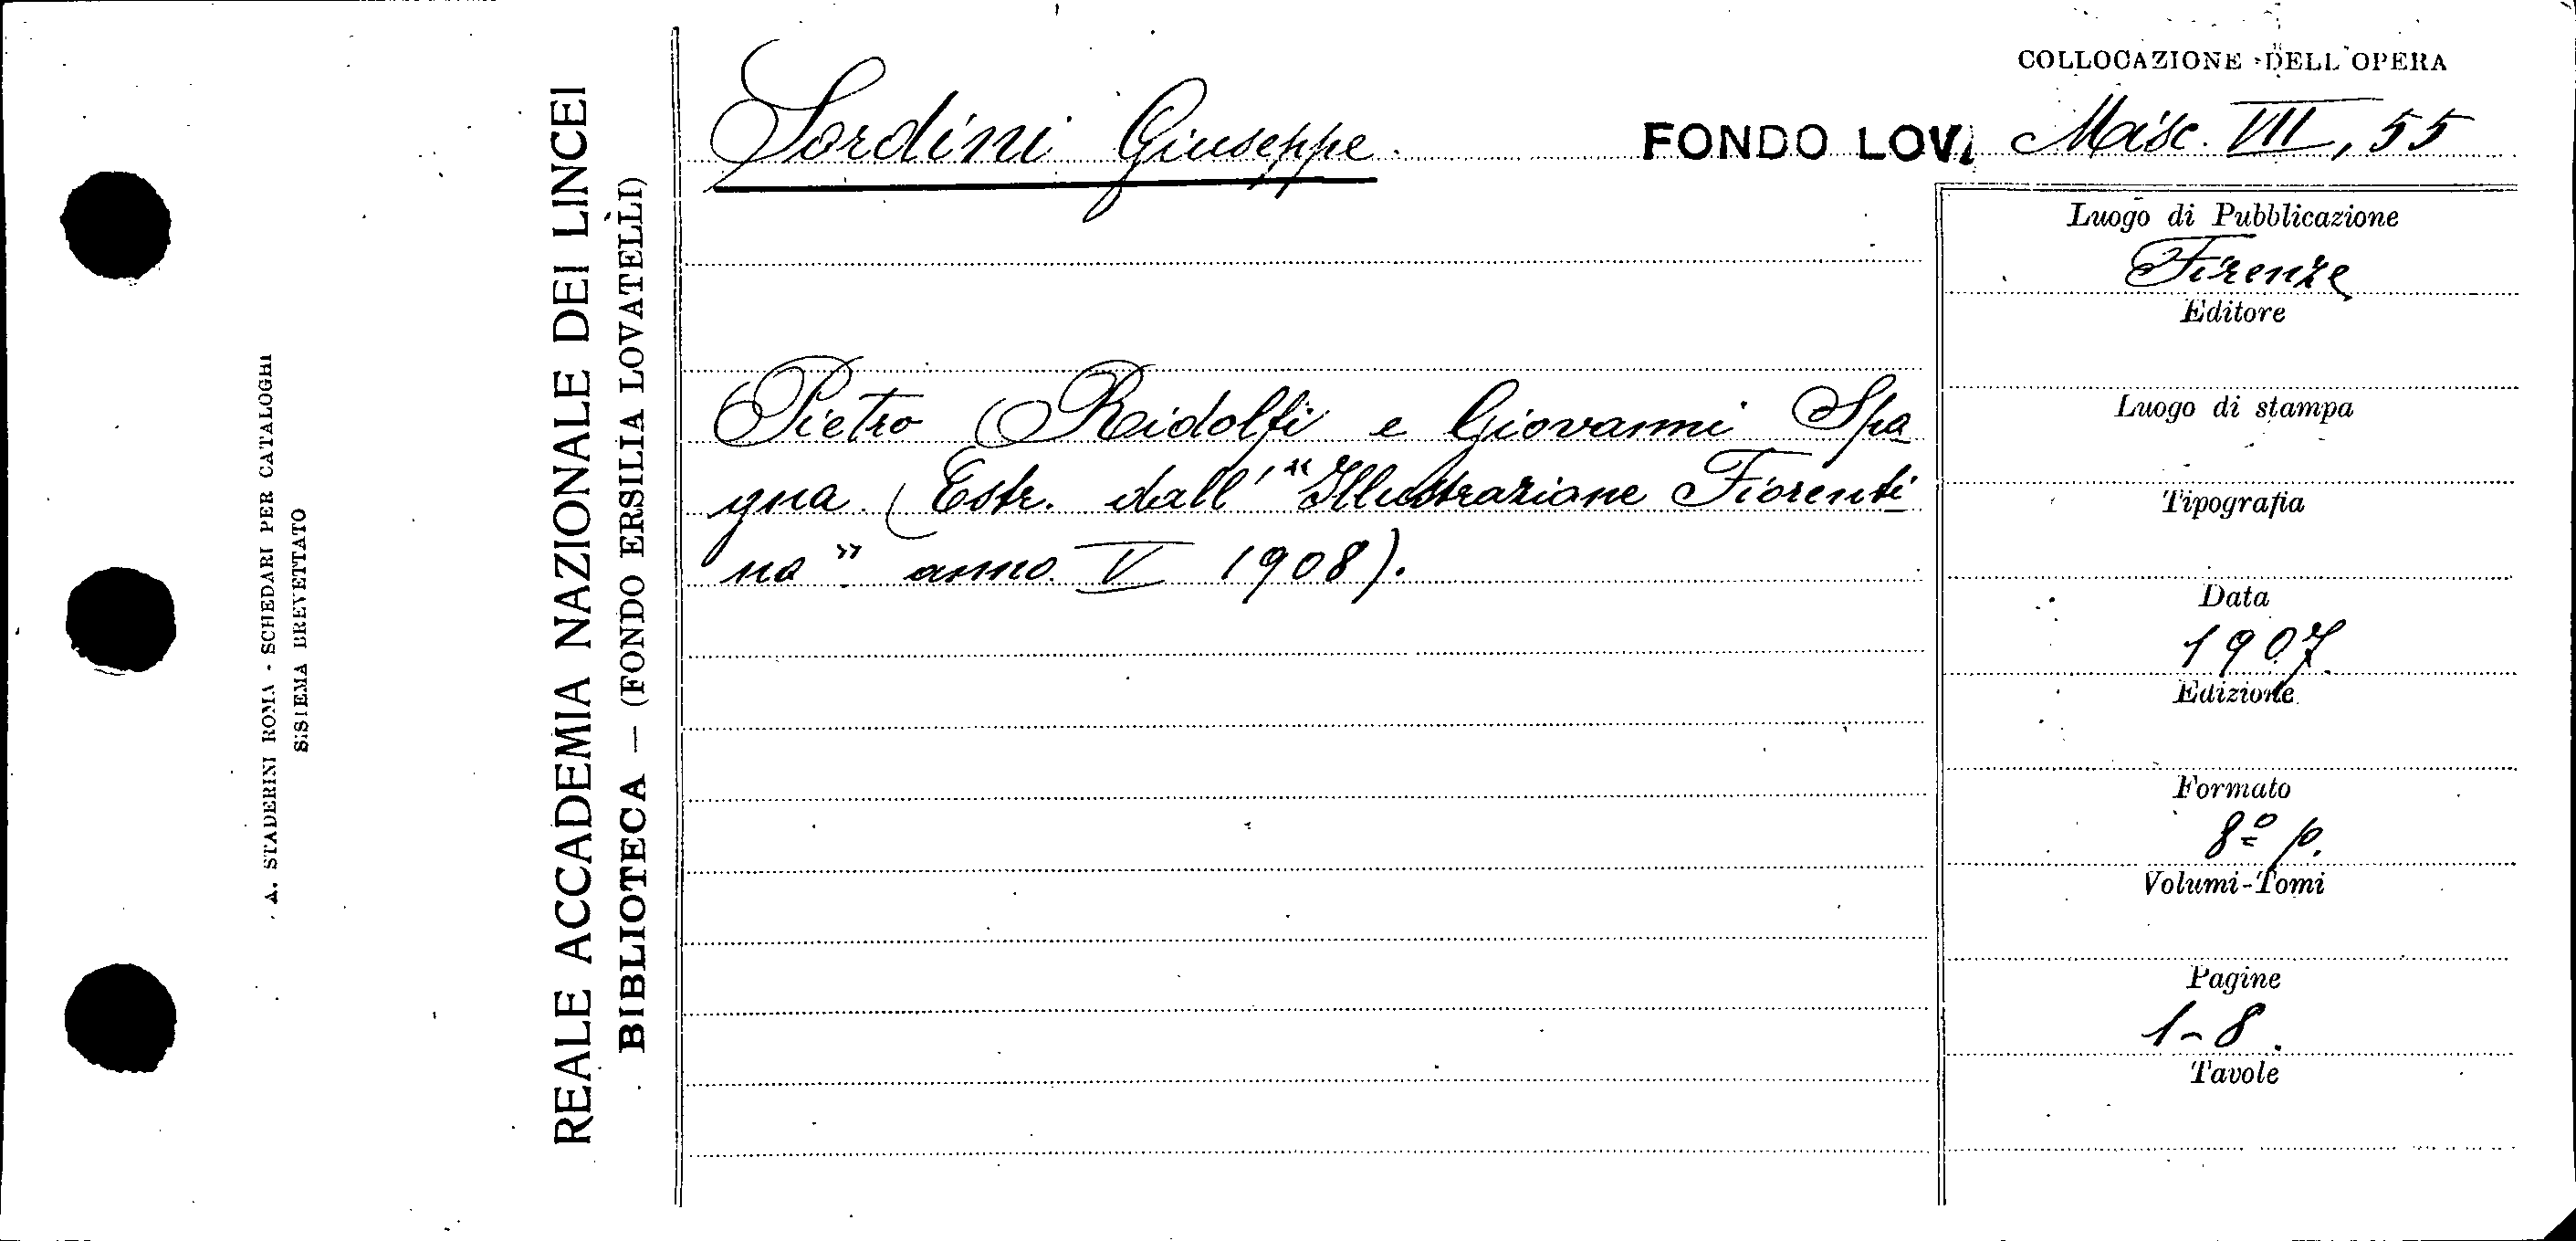 A. STADERINI ROMA - SCHEDARI PER CATALOGHI
SISTEMA BREVETTATO
REALE ACCADEMIA NAZIONALE DEI LINCEI
BIBLIOTECA — (FONDO ERSILIA LOVATELLI)
COLLOCAZIONE DELL'OPERA
Sordini Giuseppe.
FONDO LOV. Misc. VII, 55
Pietro Ridolfi e Giovanni Spa
gna (Estr. dall' "Illustrazione Fiorenti
na" anno V 1908).
Luogo di Pubblicazione
Firenze
Editore
Luogo di stampa
Tipografia
Data
1907.
Edizione
Formato
8º p.
Volumi-Tomi
Pagine
1-8.
Tavole